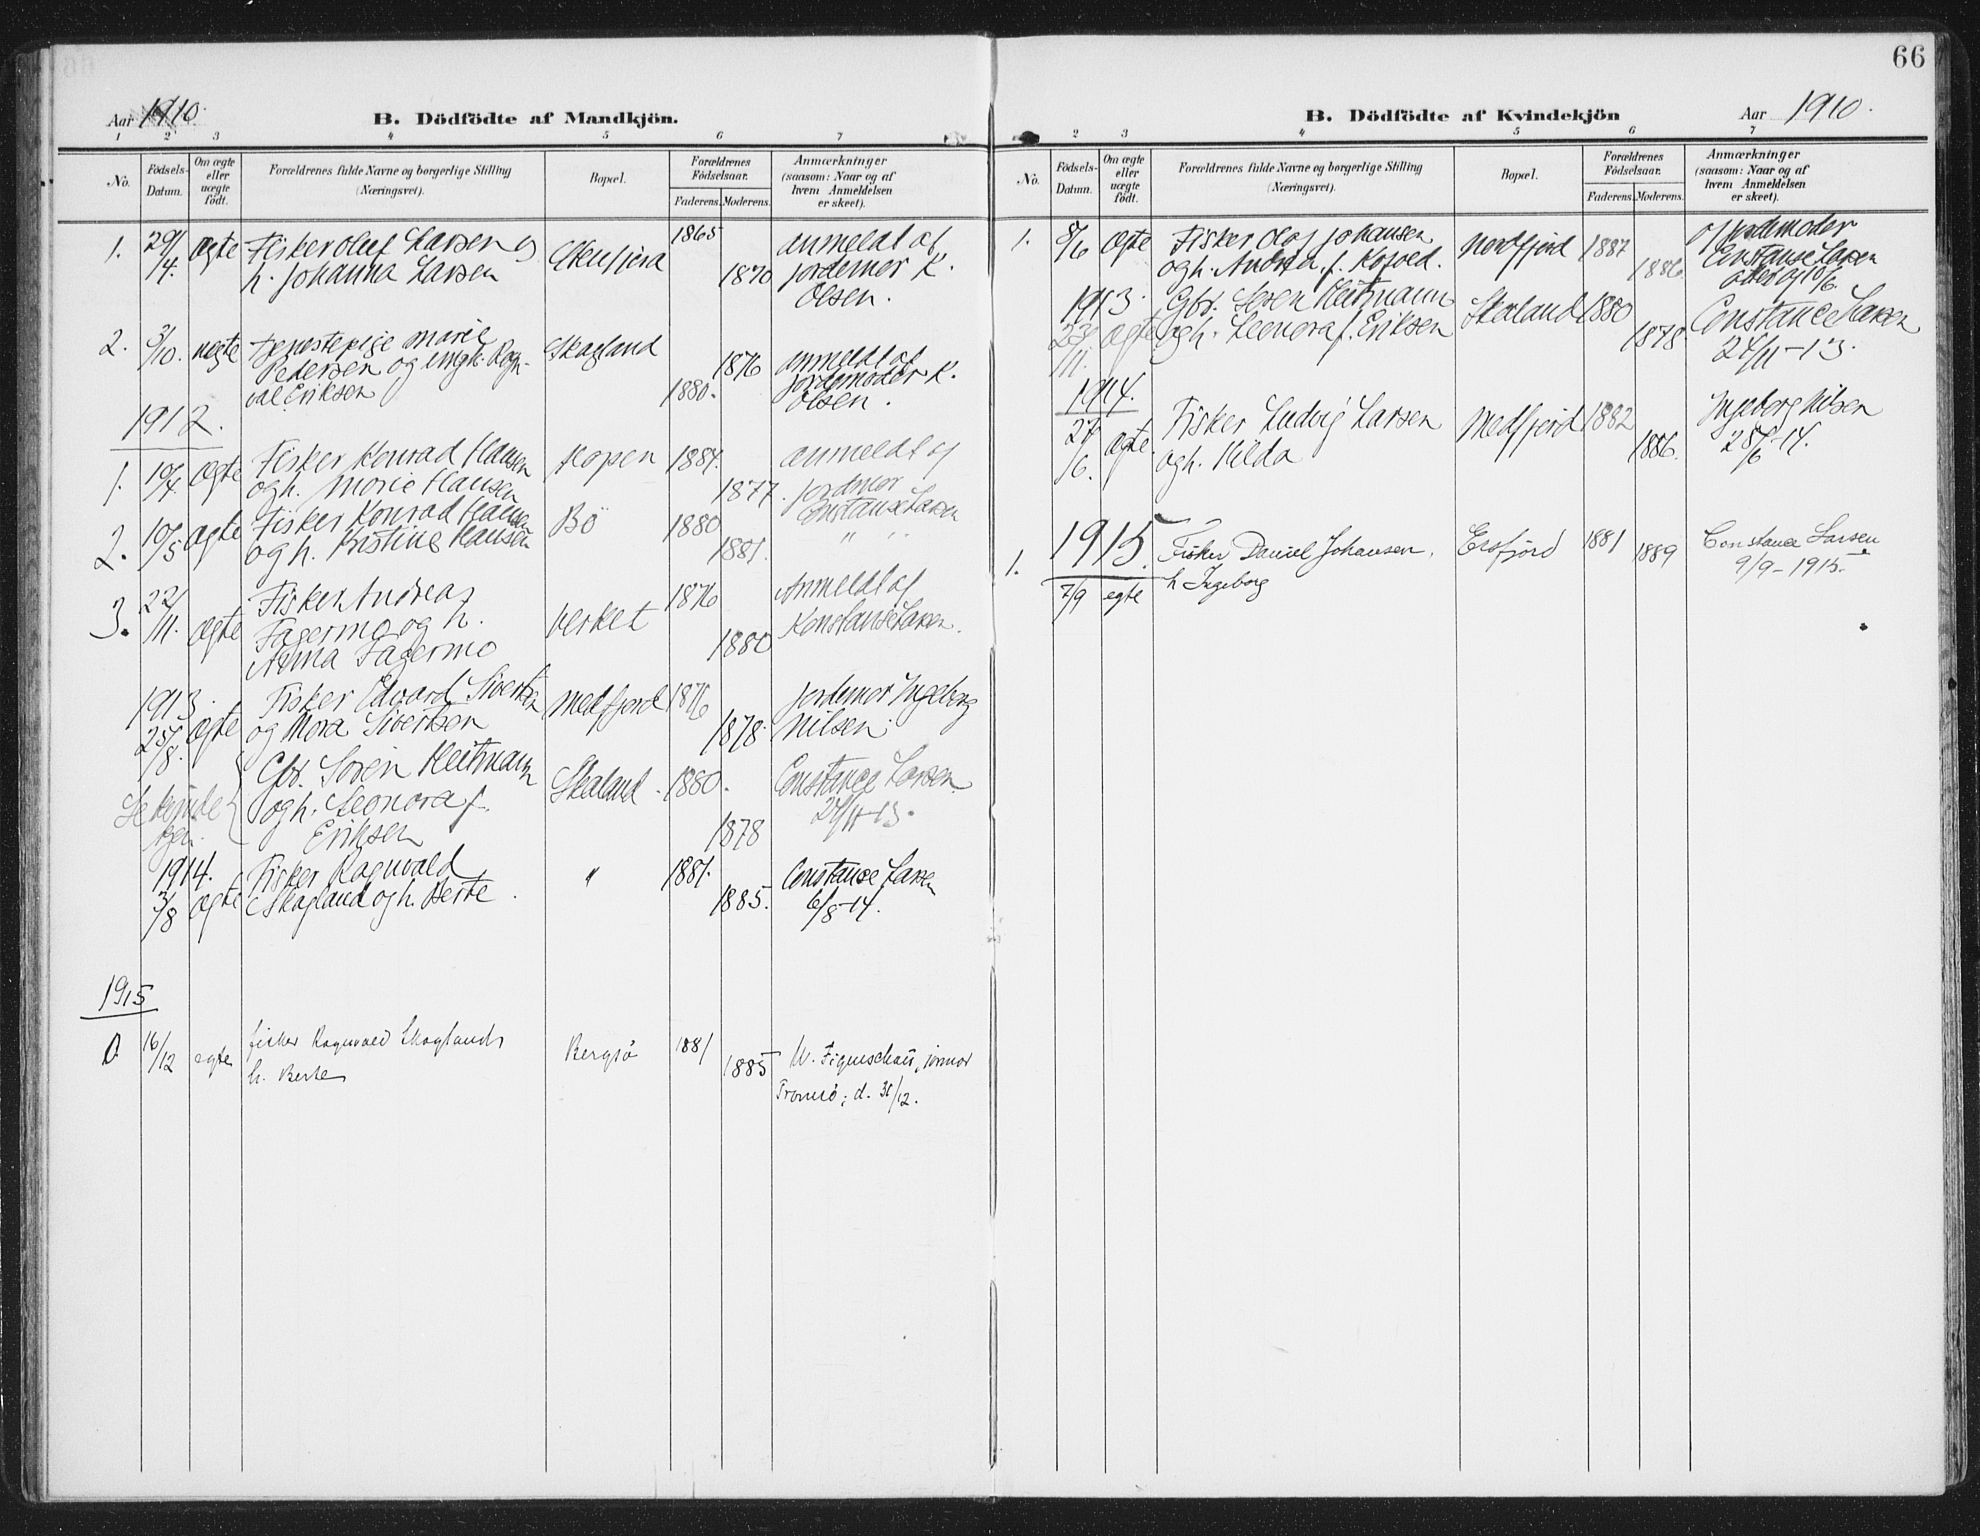 66
Aar 1910.
B. Dödfödte af Mandkjön.
1 2 3 4 5 6 7
No.
Födsels-
Datum.
Om ægte
eller
uægte
födt.
Forældrenes fulde Navne og borgerlige Stilling
(Næringsvei).
Bopæl.
Forældrenes
Födselsaar.
Faderens. Moderens.
Anmærkninger
(saasom: Naar og af
hvem Anmeldelsen
er skeet).
1. 29/4. ægte Fisker Oluf Larsen og 1865 anmeldt af
h. Johanna Larsen 1870 jordemor K.
Olsen.
2. 3/10. uegte Tjenestepige Marie Skagland
Pedersen og ungk. Rag- 1876 anmeldt af
val Eriksen 1880. jordemoder K.
Olsen.
1912.
1. 10/4. Ægte Fisker Konrad Hansen Kopen 1884. anmeldt af
og h. Marie Hansen 1877. jordmor
Constanse Larsen
2. 10/5 ægte Fisker Konrad Hansen Bö 1880 " "
og h. Kristine Hansen 1881.
3. 22/11. ægte Fisker Andreas 1876 Anmeldt af
Fagermo og h. Verket Konstanse Larsen.
Anna Fagermo 1880
1913. Fisker Edvard Sivertsen Medfjord 1876 Jordemor Ingeborg
25/8. Ægte og Mora Sivertsen 1878. Nilsen.
Gbr. Sören Heitmann Skaland. 1880. Constance Larsen
Se kvinde og h. Leonora f. 24/11-13.
Eriksen 1878
1914. Fisker Ragnvald " 1881. Constanse Larsen
3/8 Ægte Skagland og h. Berte. 1885. 6/8-14.
1915
0 16/12 egte fisker Ragnvald Skogland Bergsö 1881
h. Berte 1885 jormor
Tromsö; d. 31/12.
B. Dödfödte af Kvindekjön
Aar 1910.
2 3 4 5 6 7
No.
Födsels-
Datum.
Om ægte
eller
uægte
födt.
Forældrenes fulde Navne og borgerlige Stilling
(Næringsvei).
Bopæl.
Forældrenes
Födselsaar.
Faderens. Moderens.
Anmærkninger
(saasom: Naar og af
hvem Anmeldelsen
er skeet).
1. 8/6 Ægte Fisker Olaf Johansen Nordfjord 1887 af jordemoder
og h. Andrea f. Kofoed. 1886. Constanse Larsen
10/6
1913. Gbr. Søren Heitmann Skaland 1880 Constance Larsen
23/11. ægte og h. Leonora f. Eriksen 1878. 24/11-13.
1914.
27/6. ægte. Fisker Ludvig Larsen Medfjord 1882 Ingeborg Nilsen
og h. Hilda 1886. 28/6-14.
1915.
1. Fisker Daniel Johansen, Ersfjord 1881 1889 Constance Larsen
7/9 egte h Ingeborg 9/9-1915.